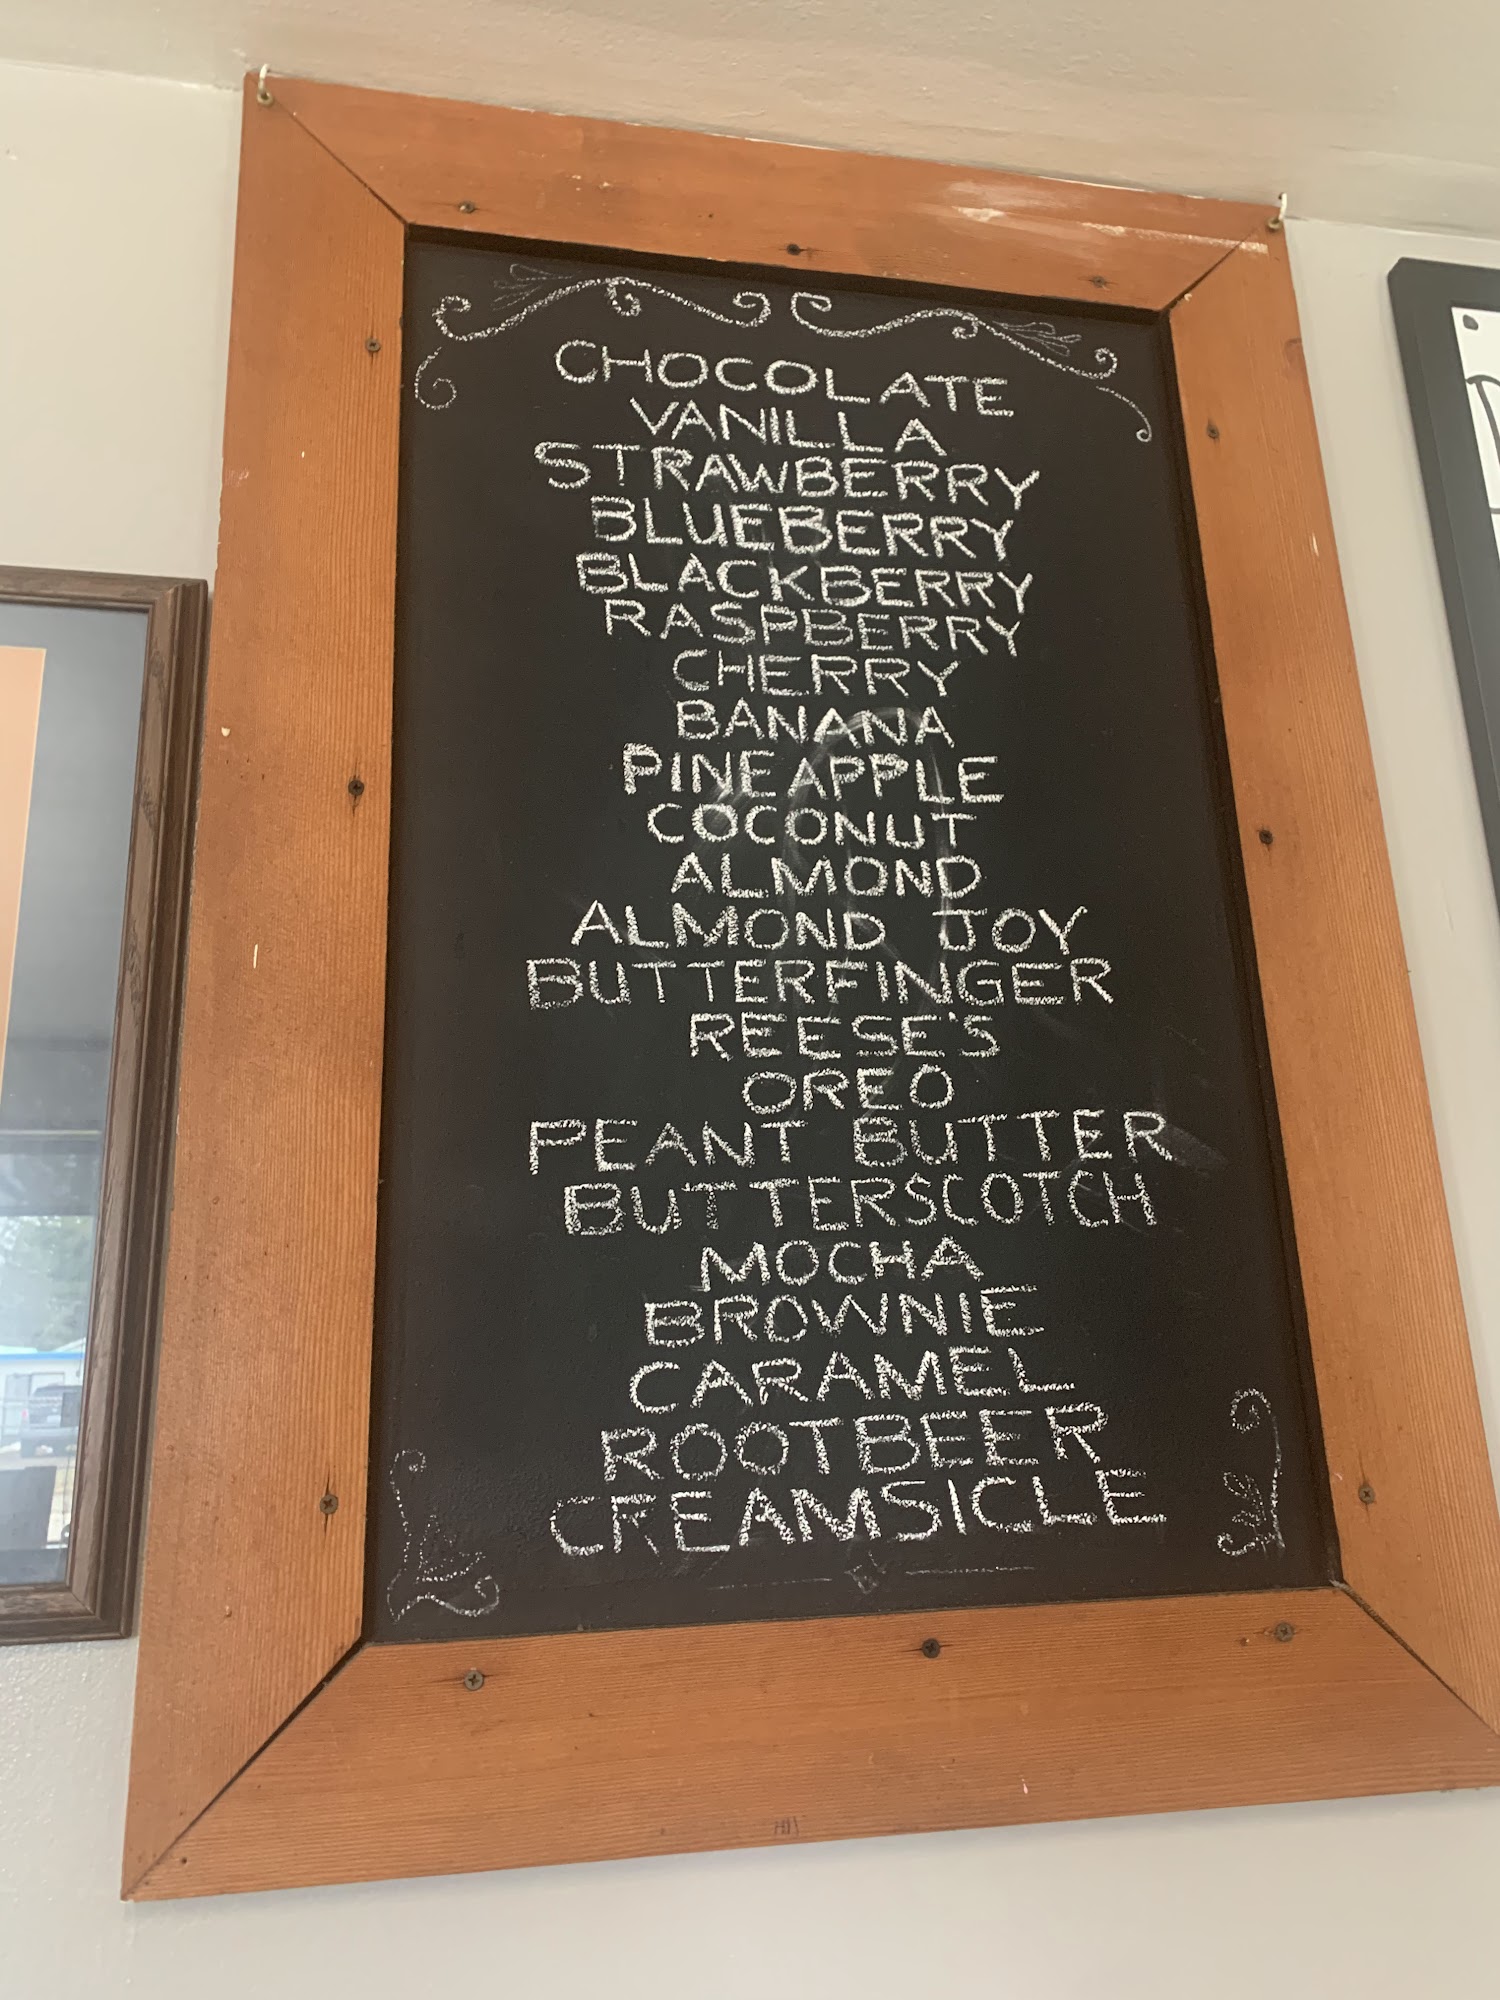 CHOCOLATE
VANILLA
STRAWBERRY
BLUEBERRY
BLACKBERRY
RASPBERRY
CHERRY
BANANA
PINEAPPLE
COCONUT
ALMOND
ALMOND JOY
BUTTERFINGER
REESE'S
OREO
PEANT BUTTER
BUTTERSCOTCH
MOCHA
BROWNIE
CARAMEL
ROOTBEER
CREAMSICLE